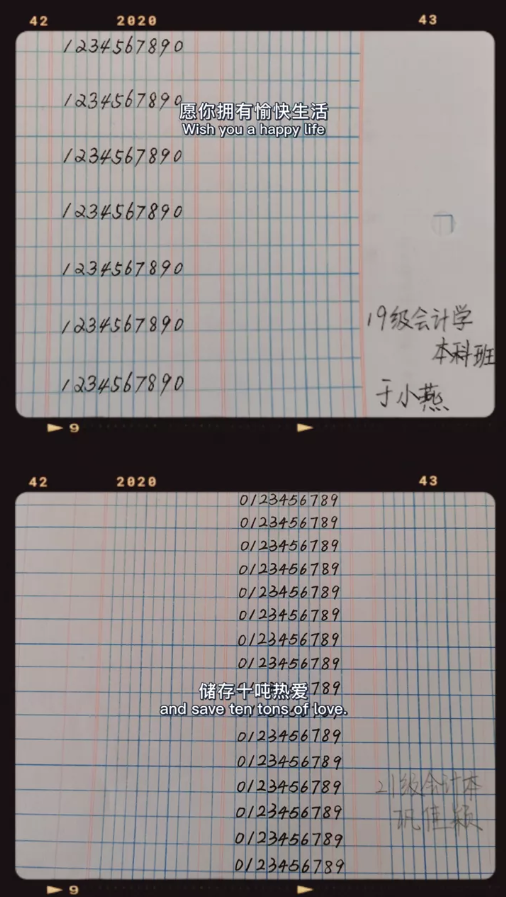 42 2020 43
1234567890
1234567890
愿你拥有愉快生活
Wish you a happy life
1234567890
1234567890
1234567890
1234567890
19级会计学
本科班
1234567890
于小燕
9
42 2020 43
0123456789
0123456789
0123456789
0123456789
0123456789
0123456789
0123456789
0123456789
储存十吨热爱
and save ten tons of love.
0123456789
0123456789
0123456789
21级会计本
0123456789
巩佳颖
0123456789
0123456789
9